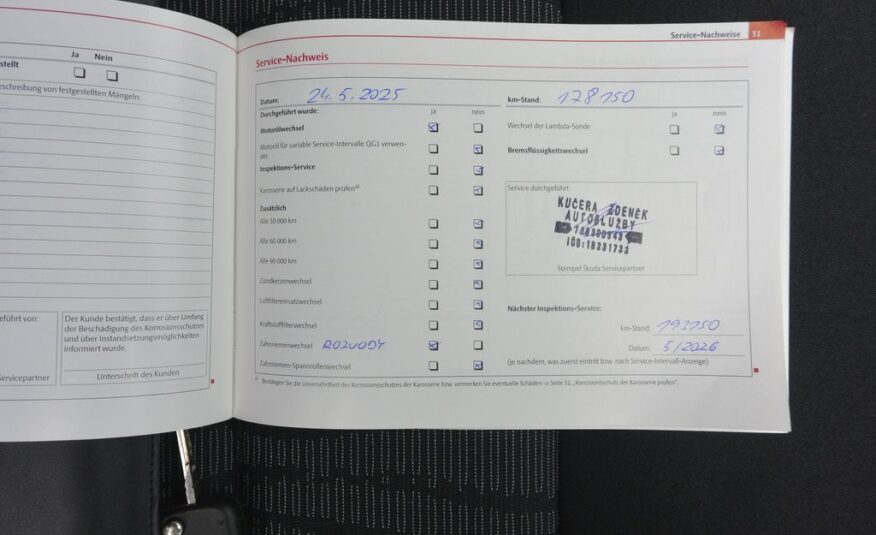 Ja Nein
stellt
eschreibung von festgestellten Mängeln:
eführt von:
Der Kunde bestätigt, dass er über Umfang
der Beschädigung des Korrosionsschutzes
und über Instandsetzungsmöglichkeiten
informiert wurde.
Servicepartner
Unterschrift des Kunden
Service-Nachweise 31
Service-Nachweis
Datum: 24.5.2025
Durchgeführt wurde: ja nein
Motorölwechsel
Motoröl für variable Service-Intervalle QG1 verwen-
det
Inspektions-Service
Karosserie auf Lackschäden prüfen a)
Zusätzlich
Alle 30 000 km
Alle 60 000 km
Alle 90 000 km
Zündkerzenwechsel
Luftfiltereinsatzwechsel
Kraftstofffilterwechsel
Zahnriemenwechsel ROZVODY
Zahnriemen-Spannrollenwechsel
km-Stand: 178150
ja nein
Wechsel der Lambda-Sonde
Bremsflüssigkeitswechsel
Service durchgeführt:
KUČERA ZDENEK
AUTOSLUŽBY
IČO:18231733
Stempel Škoda Servicepartner
Nächster Inspektions-Service:
km-Stand: 193150
Datum: 5/2026
(je nachdem, was zuerst eintritt bzw. nach Service-Intervall-Anzeige)
a) Bestätigen Sie die Unversehrtheit des Korrosionsschutzes der Karosserie bzw. vermerken Sie eventuelle Schäden ⇒ Seite 32, „Korrosionsschutz der Karosserie prüfen“.